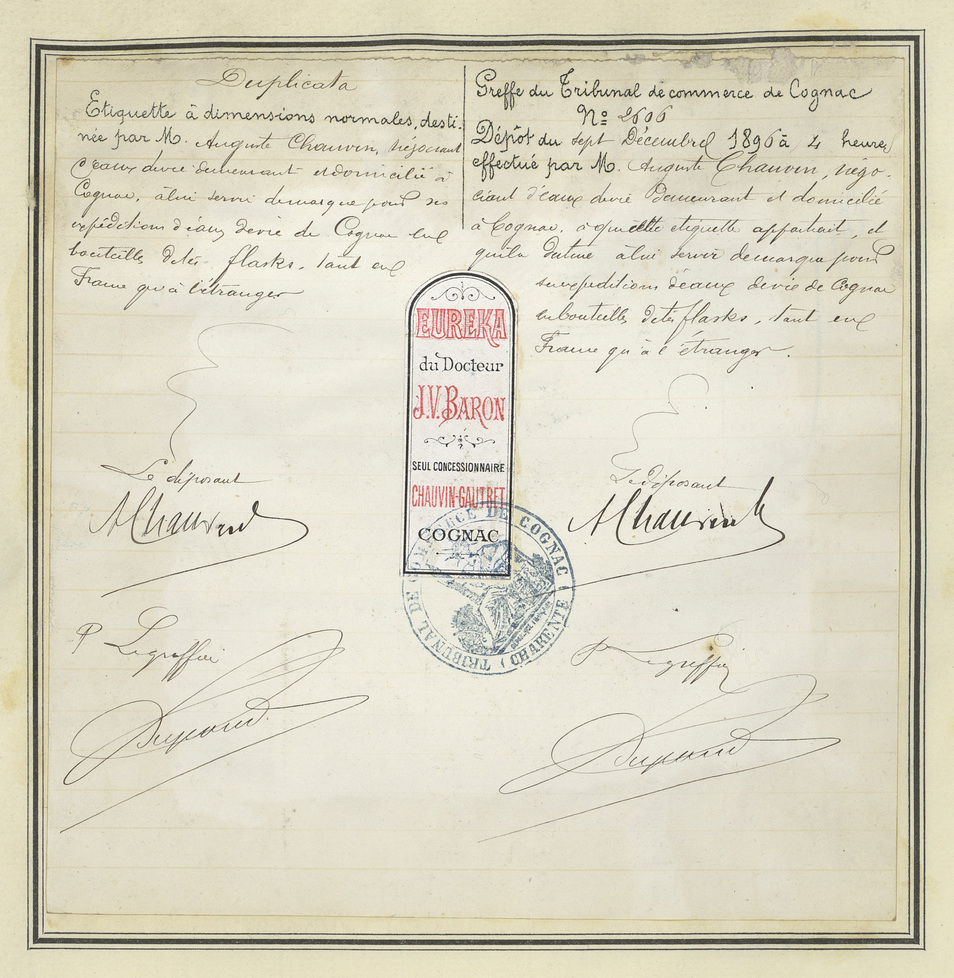 Duplicata
Etiquette à dimensions normales, desti-
née par M. Auguste Chauvin, négociant
d'eaux devie demeurant et domicilié à
Cognac, à lui servir de marque pour ses
expéditions d'eaux devie de Cognac en
bouteilles dites flasks, tant en
France qu'à l'étranger
Le déposant
AChauvin
P Le greffier
Dupond
Greffe du Tribunal de commerce de Cognac
No 2606
Dépôt du sept Décembre 1896 à 4 heures
effectué par M. Auguste Chauvin, négo-
ciant d'eaux devie Demeurant et domicilié
à Cognac, à qui cette etiquette appartient, et
qu'il a destine à lui servir de marque pour
ses expeditions d'eaux de vie de Cognac
en bouteilles dites flasks, tant en
France qu'à l'étranger.
Le déposant
AChauvin
P Le greffier
Dupond
EUREKA
du Docteur
J.V. BARON
SEUL CONCESSIONNAIRE
CHAUVIN-GAUTRET
COGNAC
TRIBUNAL DE COMMERCE DE COGNAC
(CHARENTE)